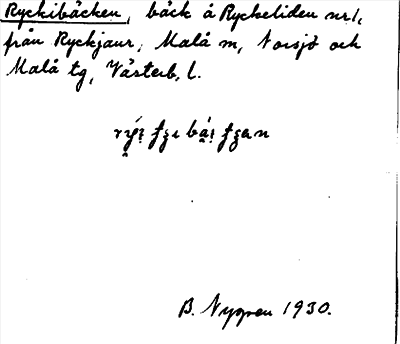 Ryckibäcken, bäck å Ryckeliden nr 1,
från Ryckjaur, Malå sn, Norsjö och
Malå tg, Västerb. l.
B. Nygren 1930.